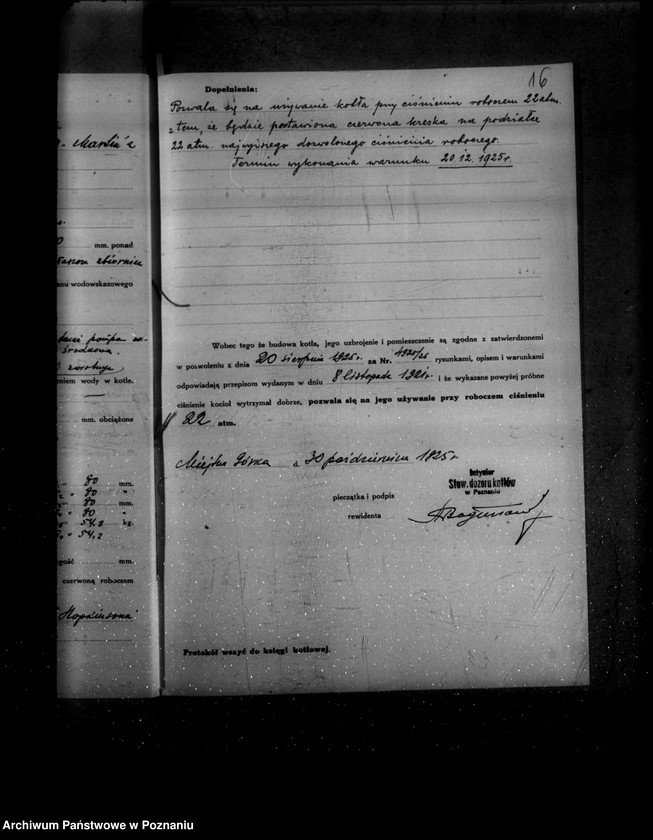 16
Dopełnienia:
Pozwala się na używanie kotła przy ciśnieniu roboczem 22 atm.
z tem, że będzie postawiona czerwona kreska na podziałce
22 atm. najwyższego dozwolonego ciśnienia roboczego.
Termin wykonania warunku 20.12.1925 r.
Wobec tego że budowa kotła, jego uzbrojenie i pomieszczenie są zgodne z zatwierdzonemi
w pozwoleniu z dnia 20 sierpnia 1925 r. za Nr. 4920/25 rysunkami, opisem i warunkami
odpowiadają przepisom wydanym w dniu 8 listopada 1921 r. i że wykazane powyżej próbne
ciśnienie kocioł wytrzymał dobrze, pozwala się na jego używanie przy roboczem ciśnieniu
22 atm.
Miejska Górka d. 30 października 1925 r.
Inżynier
Stow. dozoru kotłów
w Poznaniu
pieczątka i podpis
rewidenta
Protokół wszyć do księgi kotłowej.
mm. ponad
zbiornica
anu wodowskazowego
pompa
środkowa.
niem wody w kotle.
mm. obciążone
80 mm.
80 "
80 mm.
80 "
54,8 kg.
54,2
gość mm.
czerwoną roboczem
Hopkinsona
Archiwum Państwowe w Poznaniu